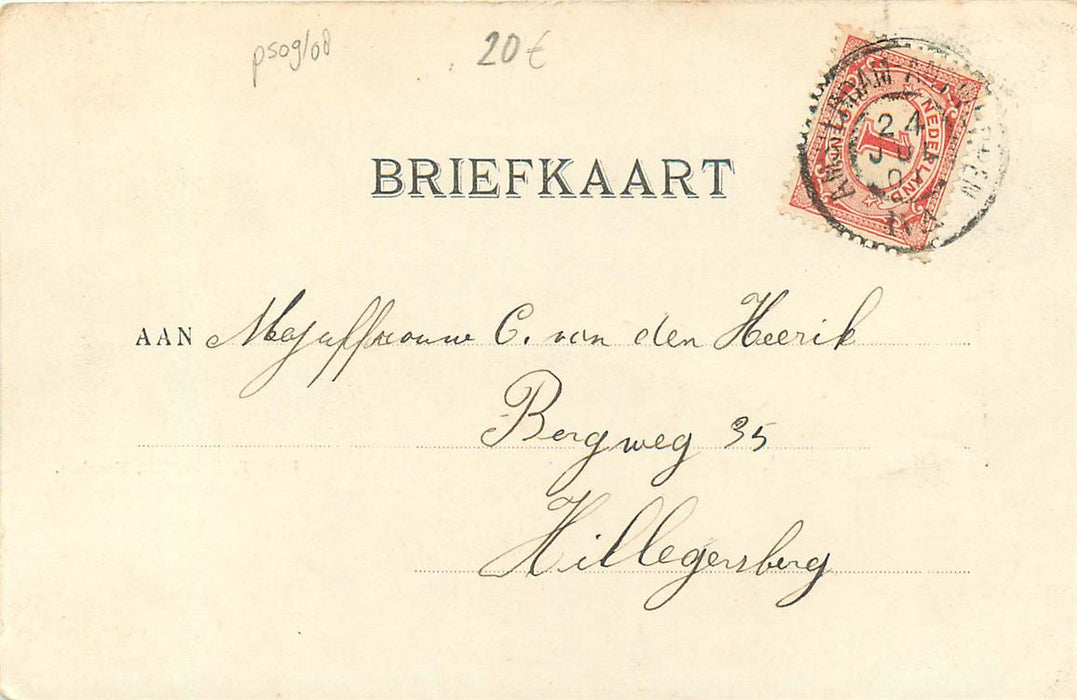 psog/08
20€
BRIEFKAART
NEDERLAND
1
24
JUN
AAN Mejuffrouw C. van den Heerik
Bergweg 35
Hillegersberg